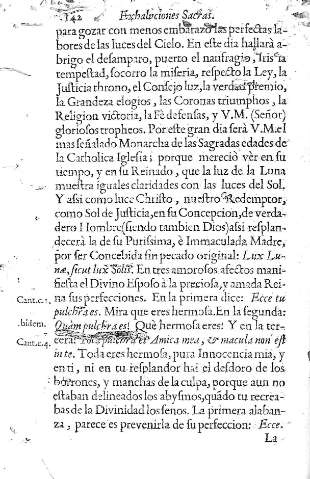 142 Exhalaciones Sacras.
para gozar con menos embarazo las perfectas la-
bores de las luces del Cielo. En este dia hallarà a-
brigo el desamparo, puerto el naufragio, Iris la
tempestad, socorro la miseria, respecto la Ley, la
Justicia throno, el Consejo luz, la verdad premio,
la Grandeza elogios, las Coronas triumphos, la
Religion victoria, la Fè defensas, y V.M. (Señor)
gloriosos tropheos. Por este gran dia serà V.M. el
mas señalado Monarcha de las Sagradas edades de
la Catholica Iglesia; porque mereciò vèr en su
tiempo, y en su Reinado, que la luz de la Luna
muestra iguales claridades con las luces del Sol.
Y assi como luce Christo, nuestro Redemptor,
como Sol de Justicia, en su Concepcion, de verda-
dero Hombre (siendo tambien Dios) assi resplan-
decerà la de su Purissima, è Immaculada Madre,
por ser Concebida sin pecado original: Lux Lu-
næ, sicut lux Solis. En tres amorosos afectos mani-
fiesta el Divino Esposo à la preciosa, y amada Rei-
Cant.c.1. na sus perfecciones. En la primera dice: Ecce tu
pulchra es. Mira que eres hermosa. En la segunda:
Ibidem. Quàm pulchra es! Què hermosa eres! Y en la ter-
Cant.c.4. cera: Tota pulchra es Amica mea, & macula non est
in te. Toda eres hermosa, pura Innocencia mia, y
en ti, ni en tu resplandor hai el desdoro de los
borrones, y manchas de la culpa, porque aun no
estaban delineados los abysmos, quãdo tu recrea-
bas de la Divinidad los senos. La primera alaban-
za, parece es prevenirla de su perfeccion: Ecce.
La